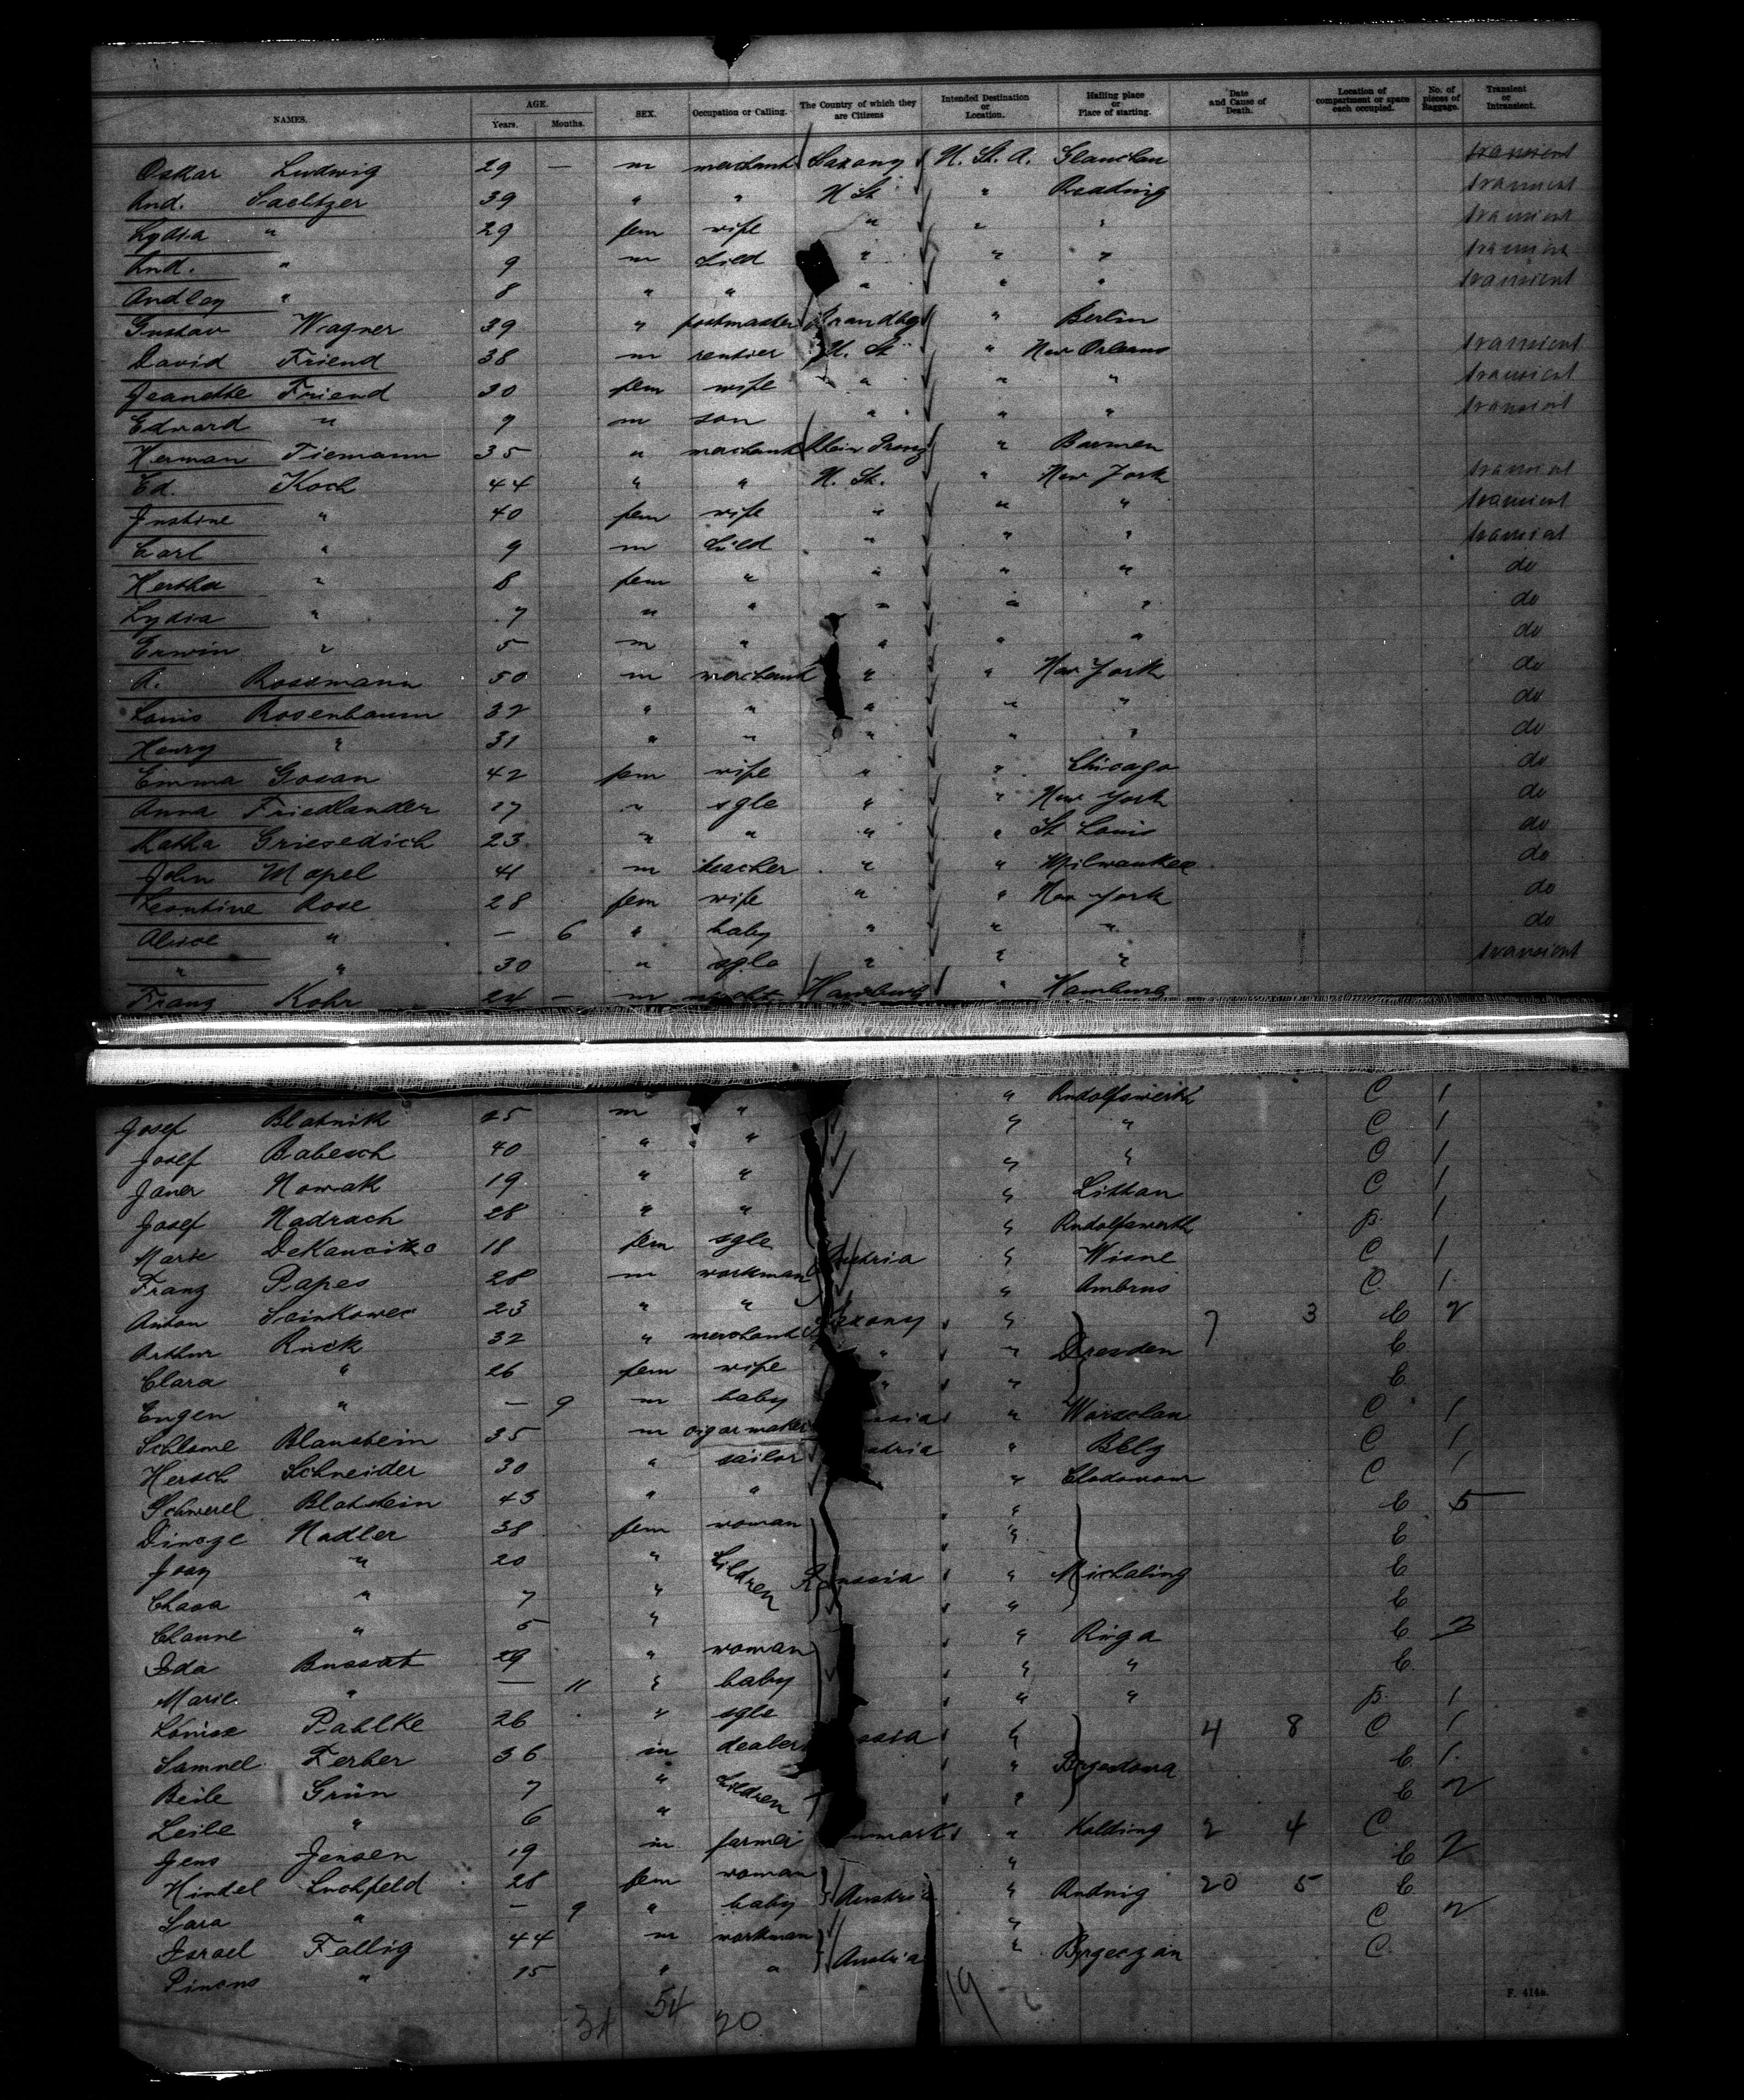 NAMES. AGE. Years. Months. SEX. Occupation or Calling. The Country of which they are Citizens Intended Destination or Location. Hailing place or Place of starting. Date and Cause of Death. Location of compartment or space each occupied. No. of pieces of Baggage. Transient or Intransient.
Oskar Ludwig 29 — m merchant Saxony U. St. A. Glauchau transient
And. Saeltzer 39 " " U St " Reading transient
Lydia " 29 fem wife " " " transient
And. " 9 m Child " " " transient
Andley " 8 " " " " " transient
Gustav Wagner 39 " postmaster Brandbg " Berlin
David Friend 38 m rentier U. St " New Orleans transient
Jeanette Friend 30 fem wife " " " transient
Edward " 9 m son " " " transient
Herman Tiemann 35 " merchant Rhein Provz " Barmen
Ed. Koch 44 " " U. St. " New York transient
Justine " 40 fem wife " " " transient
Carl " 9 m Child " " " transient
Hertha " 8 fem " " " " do
Lydia " 7 " " " " " do
Erwin " 5 m " " " " do
A. Rossmann 50 m merchant " " New York do
Louis Rosenbaum 32 " " " " " do
Henry " 31 " " " " " do
Emma Gosan 42 fem wife " " Chicago do
Anna Friedlander 17 " sgle " " New York do
Katha Griesedich 23 " " " " St Louis do
John Mapel 41 m teacher " " Milwaukee do
Leontine Rose 28 fem wife " " New York do
Alice " — 6 " baby " " " do
" " 30 " sgle " " " transient
Franz Kohr 24 — m Hamburg " Hamburg
Josef Blatnik 25 m " " Rudolfswerth C 1
Josef Babesch 40 " " " " C 1
Janer Nowak 19 " " " " C 1
Josef Nadrach 28 " " " Littau C 1
Marie 18 fem sgle " Rudolfswerth B. 1
Franz Papes 28 m workman Austria " Wisne C 1
Anton 23 " " " Ambrus C 1
Arthur Rück 32 " merchant Saxony " Dresden 7 3 C 2
Clara " 26 fem wife " " C
Eugen " — 9 m baby " " C
Schlome Blaustein 35 m cigarmaker " Warschau C 1
Hersch Schneider 30 " sailor " C 1
Blatstein 43 " " " C 1
Nadler 38 fem woman " C 5
" 20 " Children Russia " Michaling C
Chasa " 7 " " C
" 5 " " C
Ida Bussat 29 " woman " Riga C 3
Marie " — 11 " baby " " C
Louise Pahlke 26 " sgle " " B. 1
Samuel Ferber 36 m dealer " 4 8 C 1
Beile Grün 7 " Children " C 1
Leibe " 6 " " C 2
Jens Jensen 19 m farmer " Kolding 2 4 C
Hindel Luchfeld 28 fem woman Austria " Rudnig 20 5 C 2
Sara " — 9 " baby " C
Israel Fallig 44 m workman Austria " C 2
" 15 " " " C
54 20 19
F. 414a.